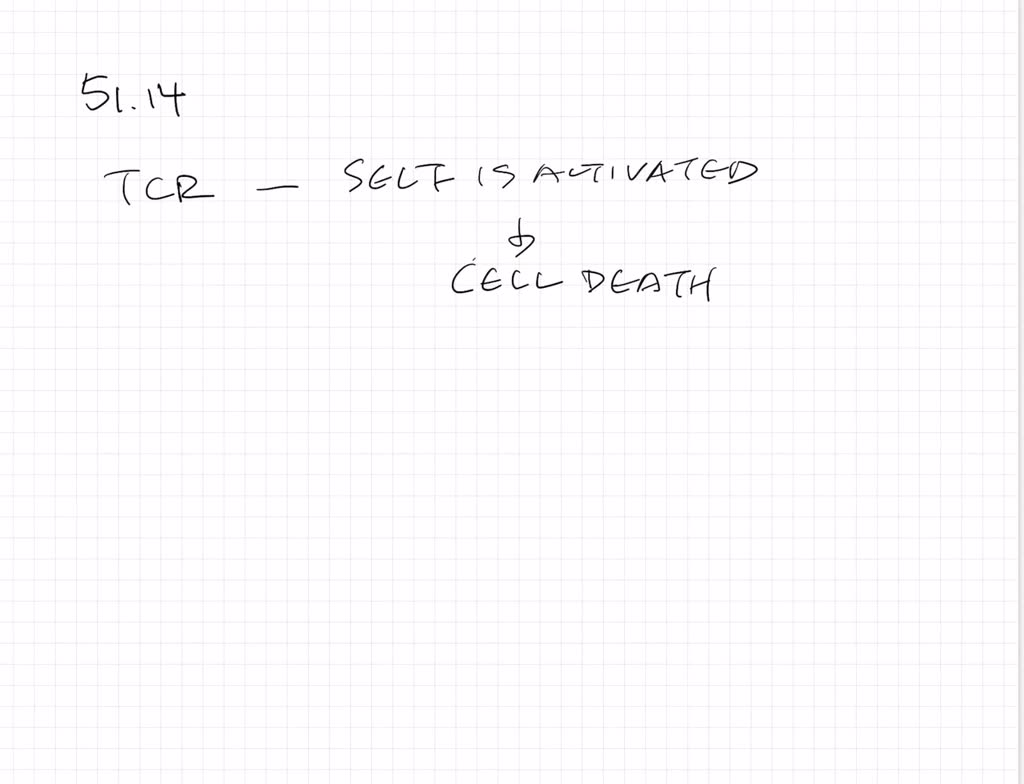 51.14
TCR — SELF IS ACTIVATED
↓
CELL DEATH